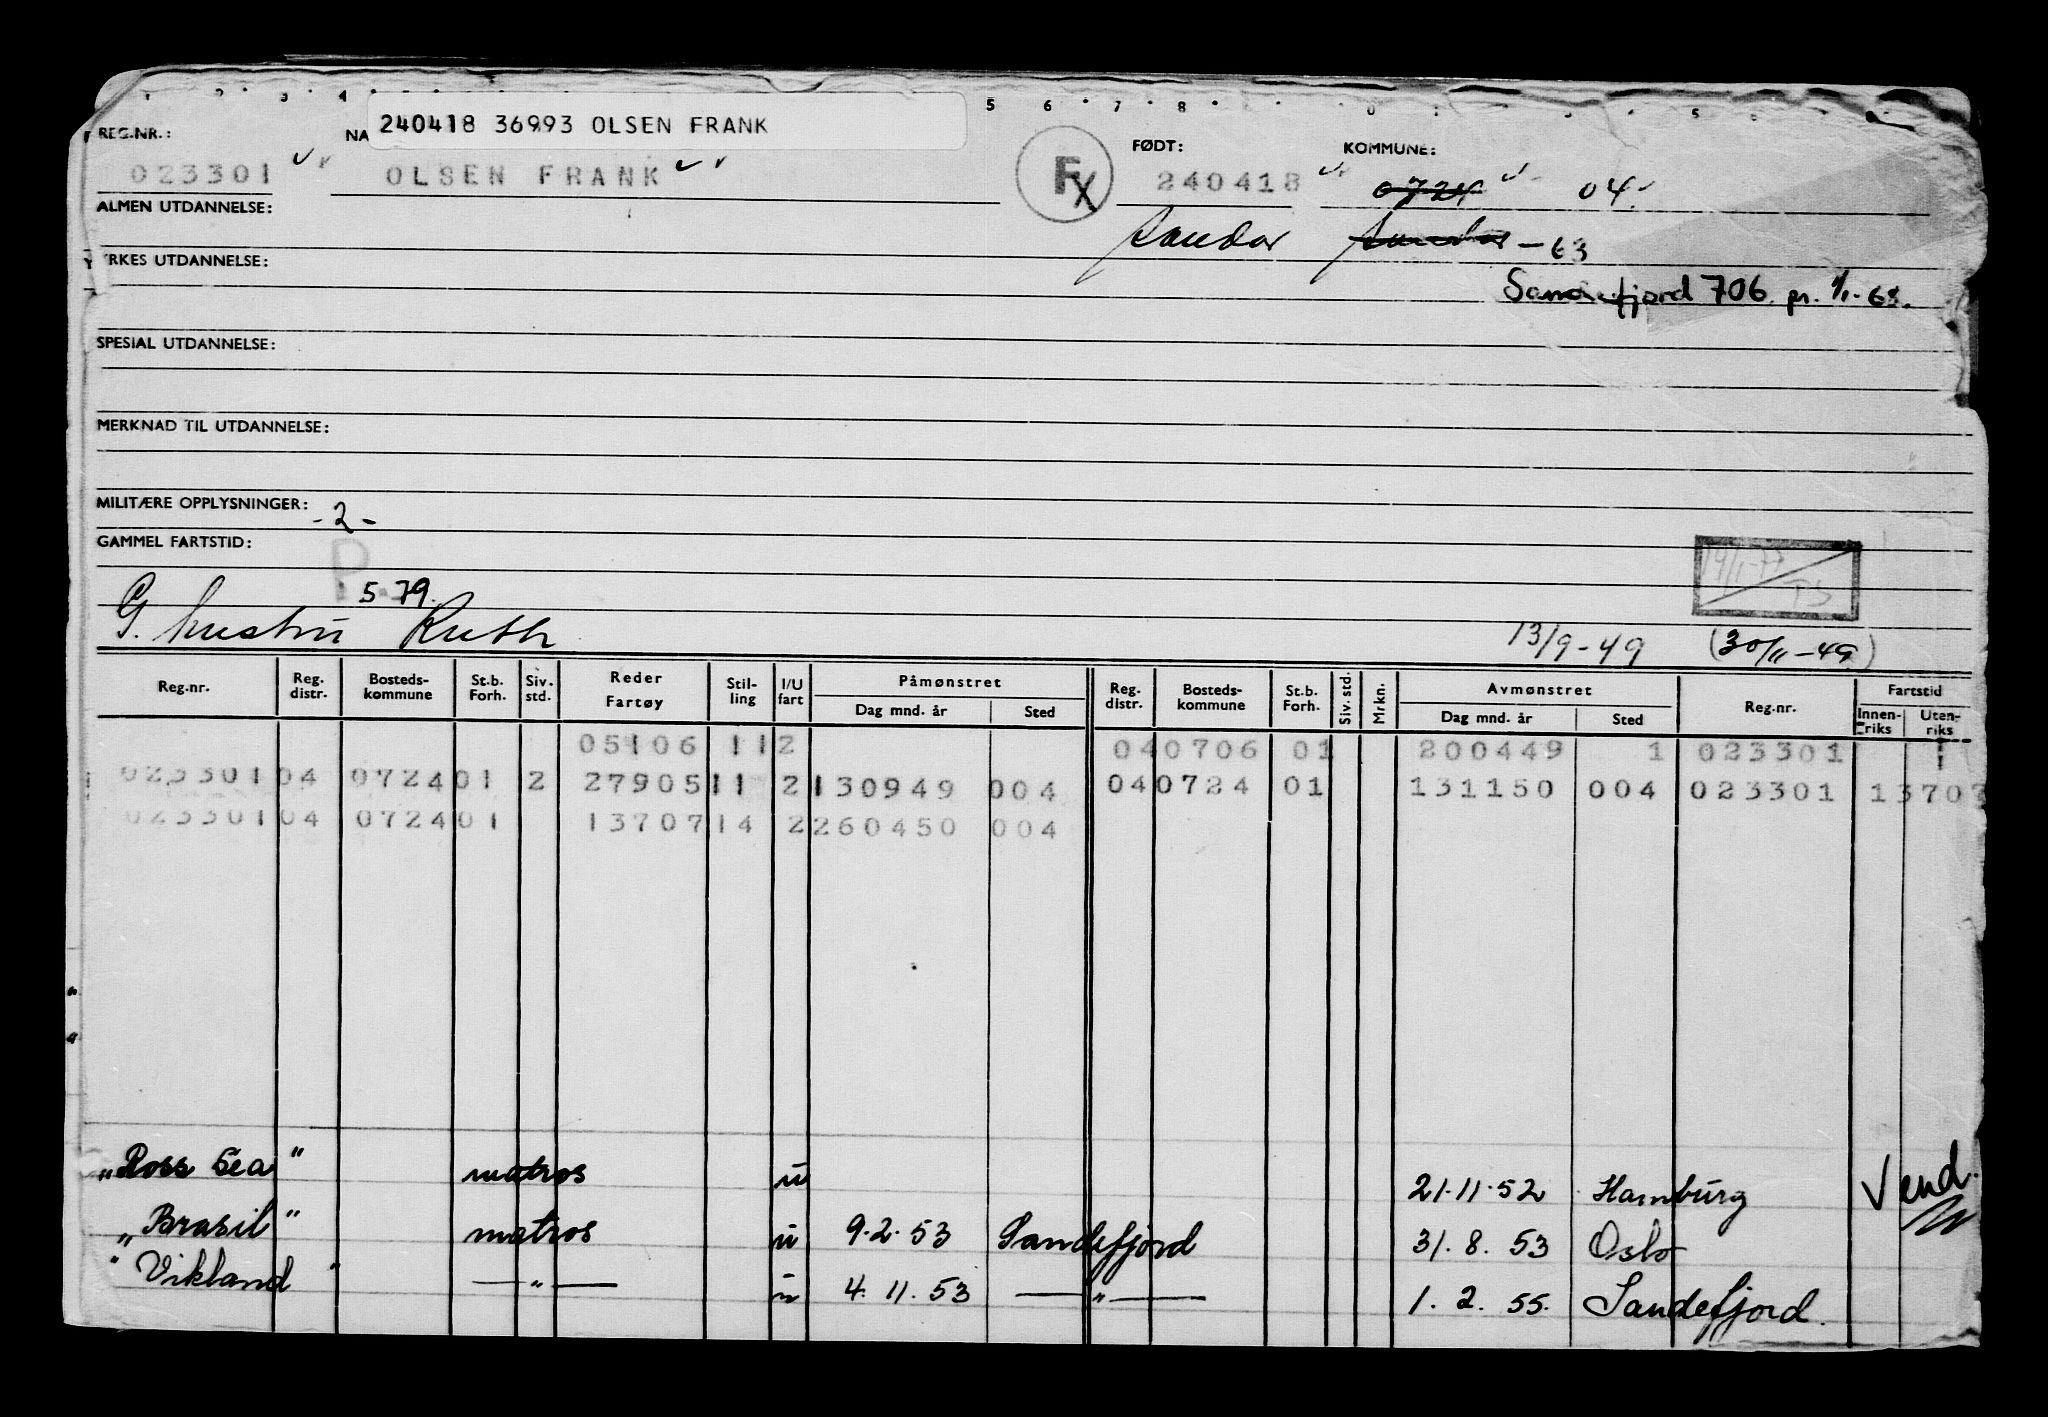 1 2 3 4 5 6 7 8 0 5
240418 36993 OLSEN FRANK
REG.NR.: NA FØDT: KOMMUNE:
023301 OLSEN FRANK F X 240418 0724 04
ALMEN UTDANNELSE:
Sandar Sandar - 63
YRKES UTDANNELSE:
Sandefjord 706 pr. 1/1-68.
SPESIAL UTDANNELSE:
MERKNAD TIL UTDANNELSE:
MILITÆRE OPPLYSNINGER: -2-
GAMMEL FARTSTID:
P 5.79.
G. hustru Ruth 13/9-49 (30/11-49)
Reg.nr. Reg. distr. Bosteds- kommune St.b. Forh. Siv. std. Reder Fartøy Stil- ling I/U fart Påmønstret Dag mnd. år Sted Reg. distr. Bosteds- kommune St.b. Forh. Siv. std. Mrkn. Avmønstret Dag mnd. år Sted Reg.nr. Fartstid Innen- riks Uten- riks
05106 112 040706 01 200449 1 023301
023301 04 0724 01 2 27905 11 2 130949 004 040724 01 131150 004 023301 13707
023301 04 0724 01 13707 14 2 260450 004
"Ross Sea" matros u 21.11.52 Hamburg Vend.
"Brasil" matros u 9.2.53 Sandefjord 31.8.53 Oslo
"Vikland" — " — u 4.11.53 — " — 1.2.55. Sandefjord.